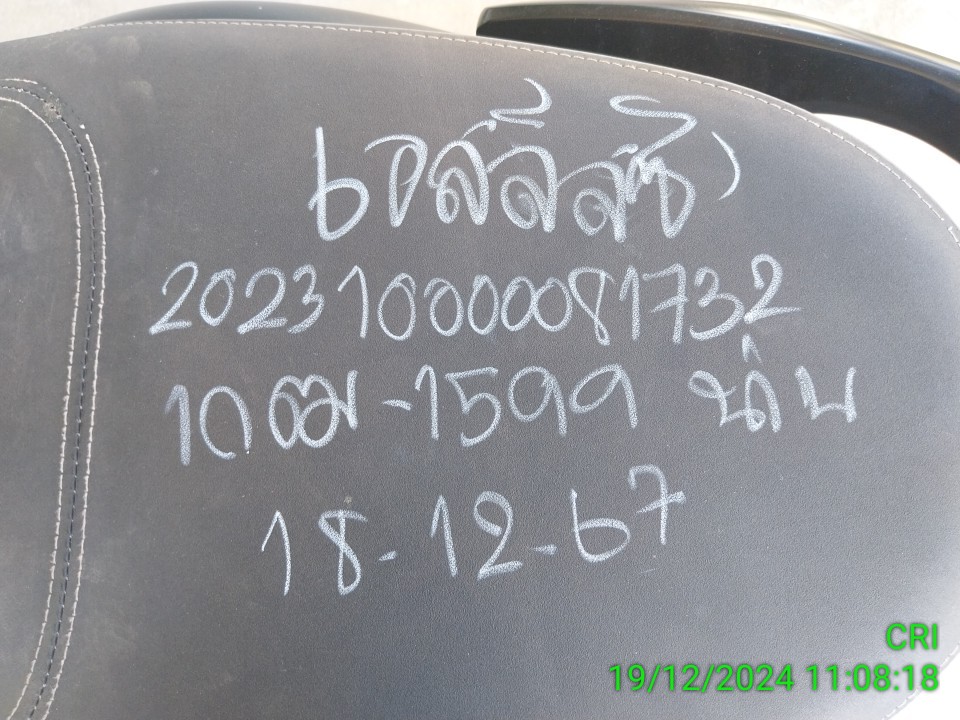 เอส์ลีสซิ่ง
20231000081732
1กฒ-1599 น่าน
18-12-67
CRI
19/12/2024 11:08:18